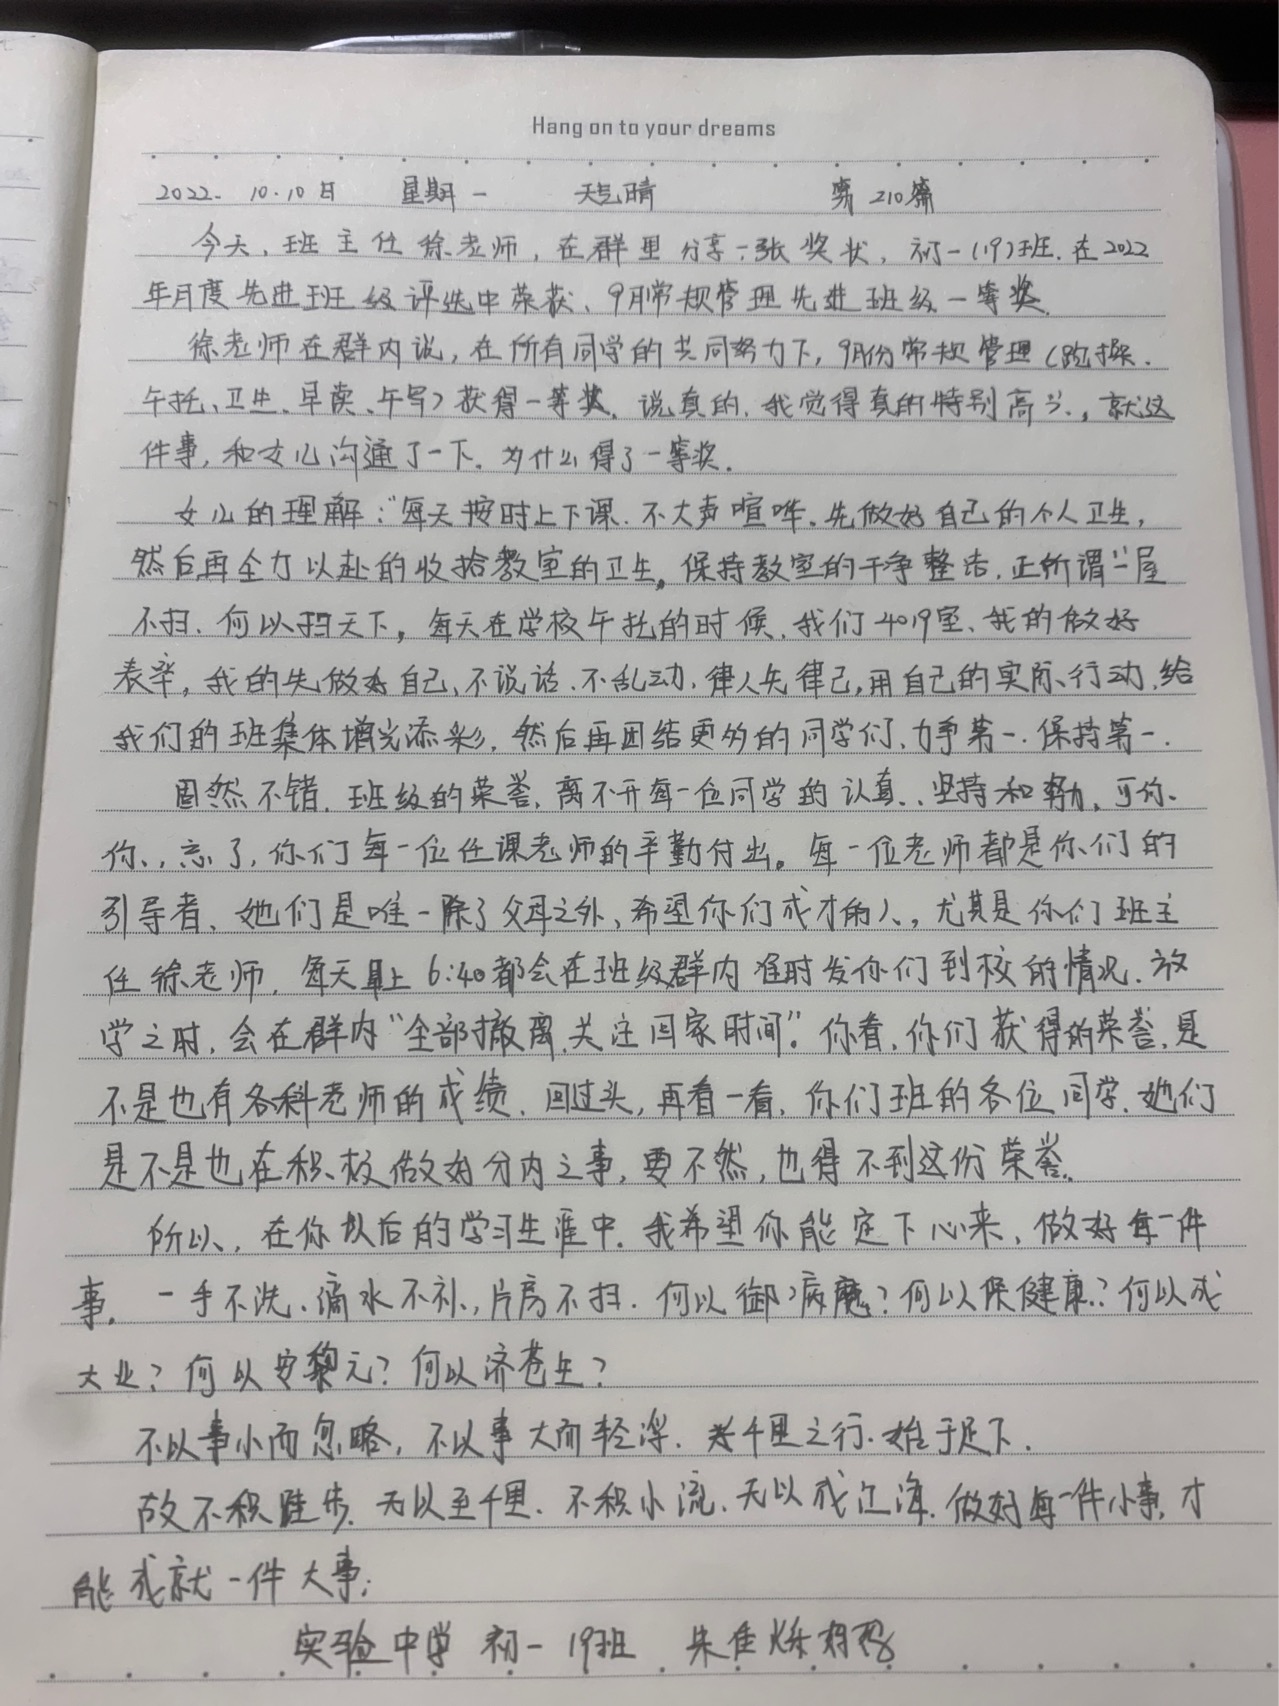 Hang on to your dreams
2022. 10.10日 星期一 天气晴 第210篇
今天,班主任徐老师,在群里分享一张奖状,初一(19)班.在2022
年月度先进班级评选中荣获、9月常规管理先进班级一等奖.
徐老师在群内说,在所有同学的共同努力下,9月份常规管理(跑操.
午托、卫生、早读、午写)获得一等奖.说真的.我觉得真的特别高兴.,就这
件事,和女儿沟通了一下.为什么得了一等奖.
女儿的理解:"每天按时上下课.不大声喧哗.先做好自己的个人卫生,
然后再全力以赴的收拾教室的卫生,保持教室的干净整洁.正所谓"一屋
不扫.何以扫天下,每天在学校午托的时候.我们4019室、我的做好
表率,我的先做好自己、不说话.不乱动.律人先律己,用自己的实际行动.给
我们的班集体增光添彩,然后再团结更多的同学们、力争第一.保持第一.
固然不错.班级的荣誉,离不开每一位同学的认真、坚持和努力,可你、
你、忘了,你们每一位任课老师的辛勤付出。每一位老师都是你们的
引导者、她们是唯一除了父母之外、希望你们成才的人,尤其是你们班主
任徐老师,每天早上6:40都会在班级群内准时发你们到校的情况.放
学之时,会在群内"全部撤离.关注回家时间".你看,你们获得的荣誉.是
不是也有各科老师的成绩.回过头,再看一看.你们班的各位同学.她们
是不是也在积极做好分内之事,要不然,也得不到这份荣誉.
所以、在你以后的学习生涯中.我希望你能定下心来、做好每一件
事.一手不洗、滴水不补,片房不扫.何以御病魔?何以保健康?何以成
大业?何以安黎元?何以济苍生?
不以事小而忽略,不以事大而轻浮.千里之行.始于足下.
故不积跬步.无以至千里.不积小流.无以成江海.做好每一件小事,才
能成就一件大事;
实验中学 初一 19班 朱佳烁妈妈